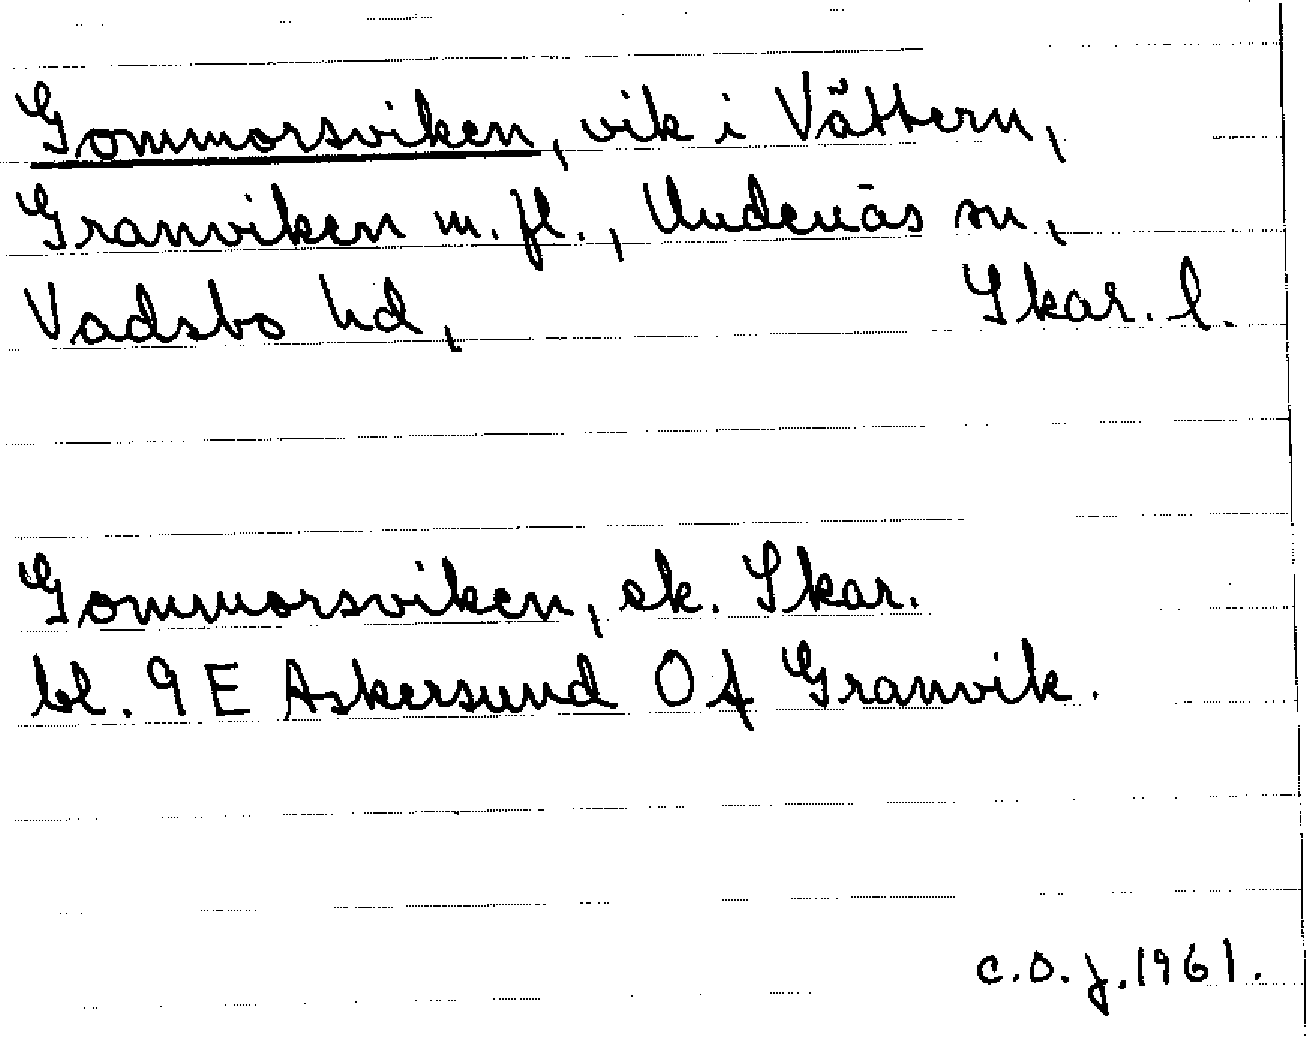 Gommorsviken, vik i Vättern,
Granviken m. fl., Undenäs sn,
Vadsbo hd, Skar. l.
Gommorsviken, ek. Skar.
bl. 9 E Askersund 0 f Granvik.
C.O.J. 1961.